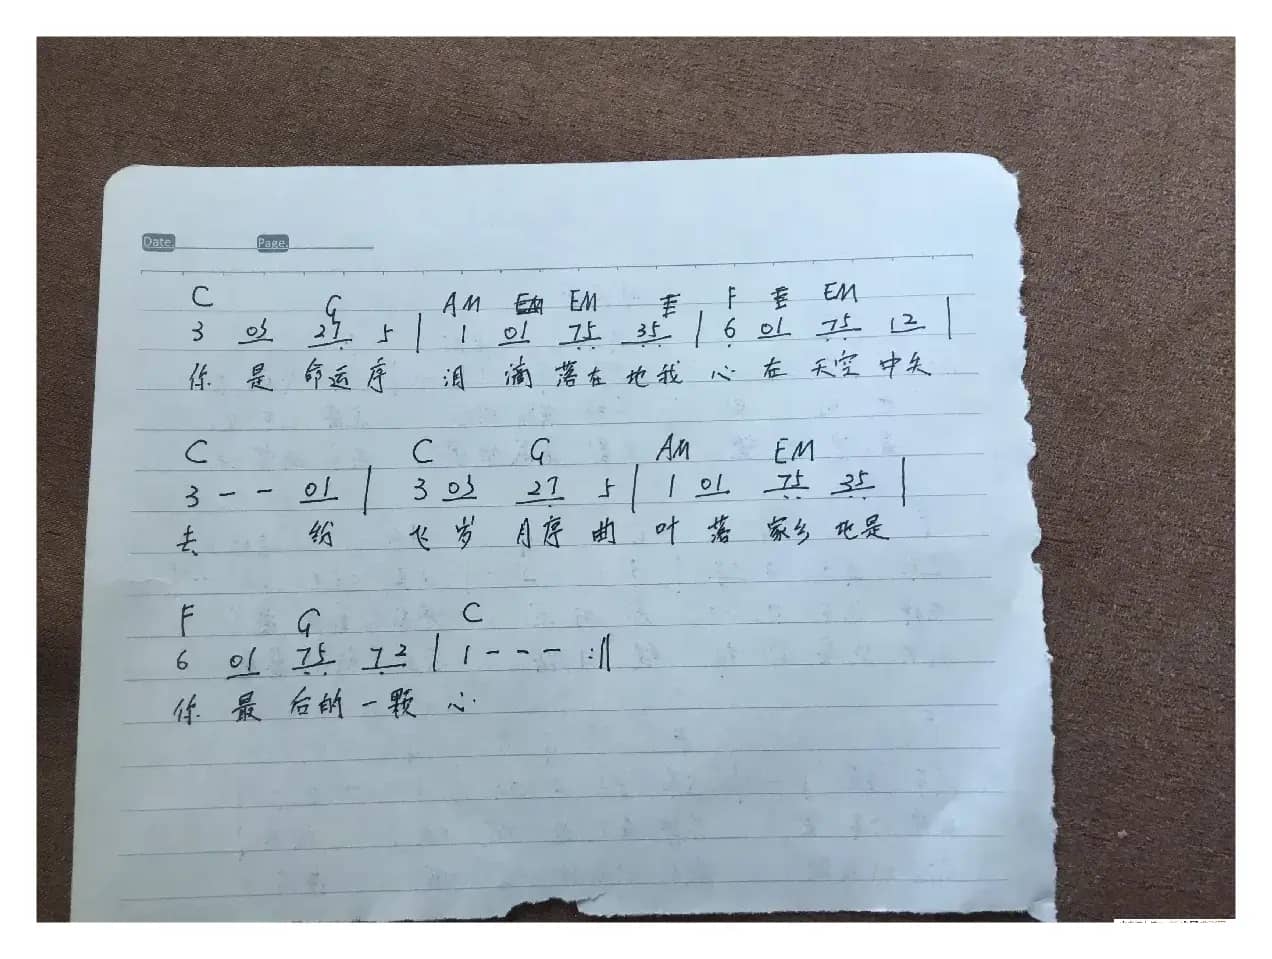 Date. Page.
C G AM EM F EM
3 03 27 5 | 1 01 75 35 | 6 01 75 12 |
你 是 命运 序 泪 滴 落在 地我 心 在 天空 中矢
C C G AM EM
3 - - 01 | 3 03 27 5 | 1 01 75 35 |
去 纷 飞 岁 月序 曲 叶 落 家乡 地是
F G C
6 01 75 72 | 1 - - - :||
你 最 后的 一颗 心